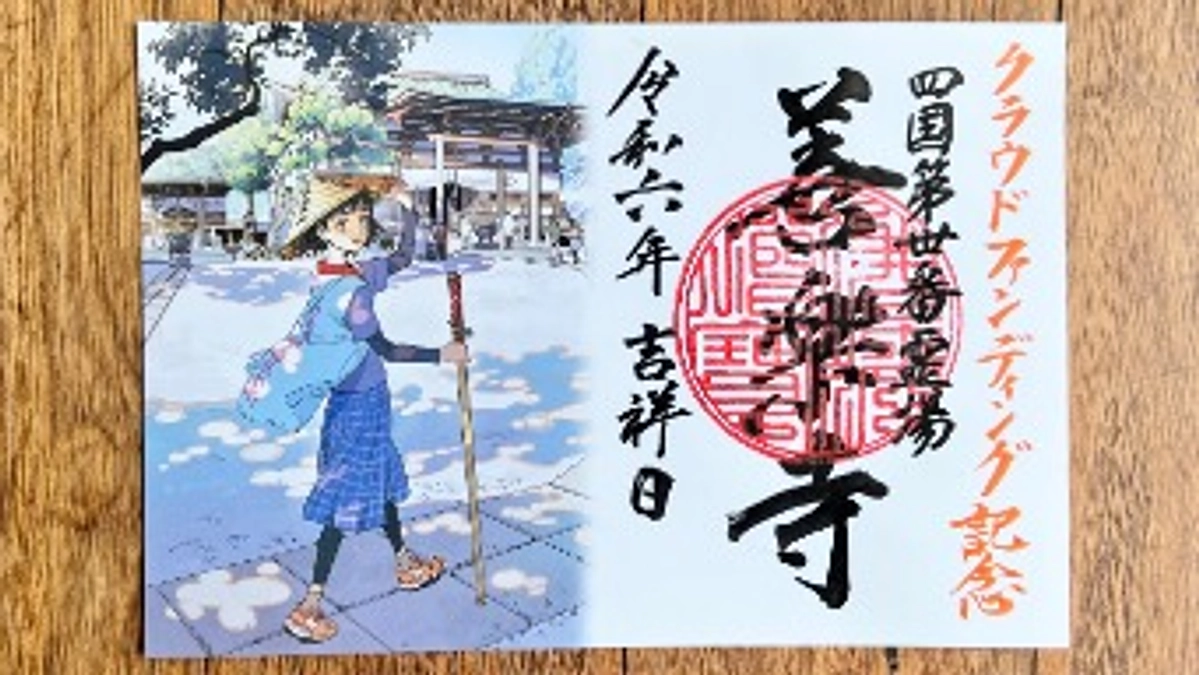 クラウドファンディング記念
四国第丗番霊場
善楽寺
令和六年 吉祥日